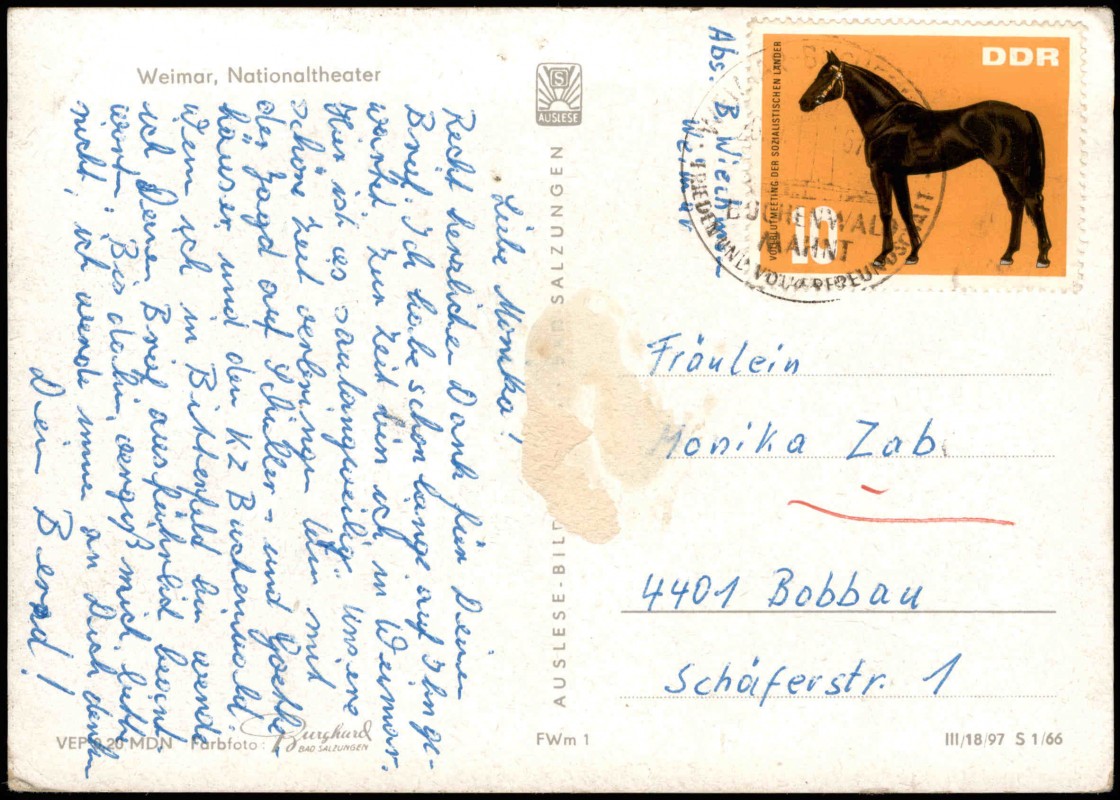 Weimar, Nationaltheater
AUSLESE
Abs. B. Wiech
Weimar
DDR
VOLLBLUTMEETING DER SOZIALISTISCHEN LÄNDER
10
BUCHENWALD
MAHNT
FRIEDEN UND VÖLKERFREUNDSCHAFT
Liebe Monika!
Recht herzlichen Dank für Deinen
Brief. Ich habe schon lange auf ge-
wartet. Zur Zeit bin ich in Weimar.
Hier ist es saulangweilig. Unsere
schöne Zeit verbringen wir mit
der Jagd auf Schiller- und Goethe-
häuser und den KZ Buchenwald.
Wenn ich in Bitterfeld bin werde
ich Deinen Brief ausführlich beant-
worten. Bis dahin, vergiß mich bitte
nicht, ich werde immer an Dich denken
Dein Bernd!
AUSLESE-BILD BAD SALZUNGEN
Fräulein
Monika Zab
4401 Bobbau
Schäferstr. 1
VEP 0,20 MDN Farbfoto: Burghard
BAD SALZUNGEN
FWm 1
III/18/97 S 1/66